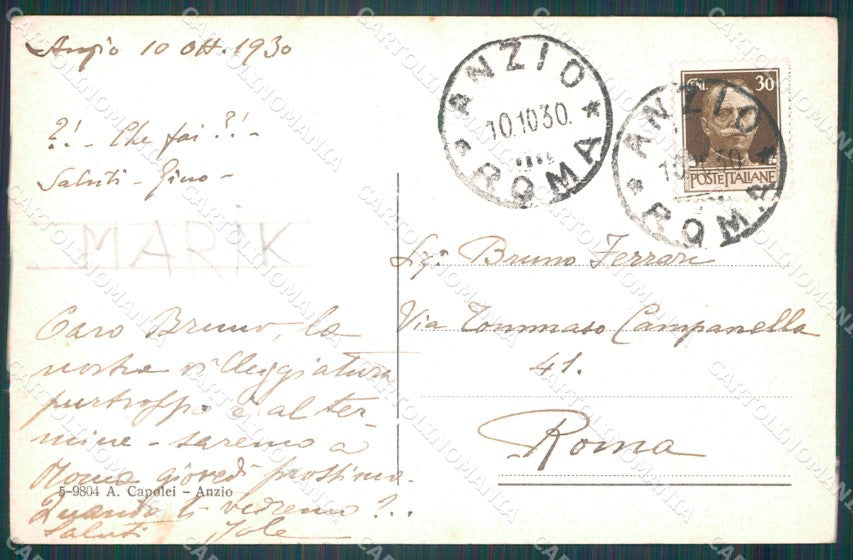 Anzio 10 Ott. 1930
?!- Che fai?!-
Saluti - Gino -
MARIK
Caro Bruno, la
nostra villeggiatura
purtroppo è al ter-
mine - saremo a
Roma giovedì prossimo.
5-9804 A. Capolei - Anzio
Quando ti vedremo?..
Saluti Jole
ANZIO
10.10 30.
ROMA
CENT. 30
POSTE ITALIANE
ANZIO
ROMA
Sig: Bruno Ferrari
Via Tommaso Campanella
41.
Roma
CARTOLINOMANIA